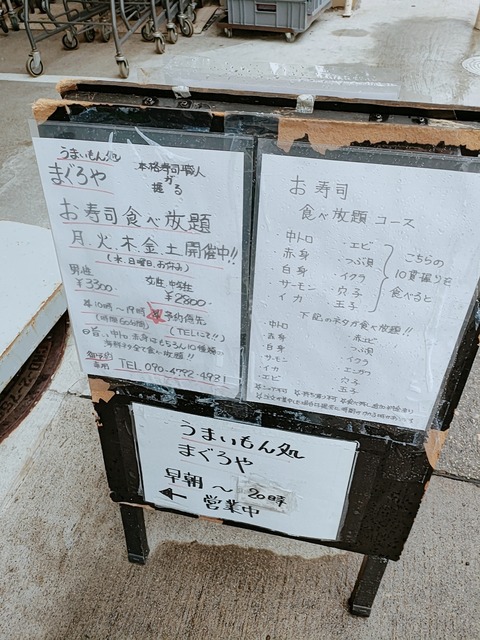 うまいもん処
まぐろや
本格寿司職人
が
握る
お寿司食べ放題
月.火.木.金.土開催中!!
(水.日曜日.お休み)
男性
¥3300
女性.中学生
¥2800
10時〜19時
予約優先
(時間60分間)
(TELにて!!)
中トロ赤身はもちろん10種類の
全て食べ放題!!
専用
TEL 090-4792-4931
お寿司
食べ放題 コース
・中トロ ・エビ
・赤身 ・つぶ貝
・白身 ・イクラ
・サーモン ・穴子
・イカ ・玉子
こちらの
10貫握りを
食べると
下記のネタが食べ放題!!
・中トロ ・赤エビ
・赤身 ・つぶ貝
・白身 ・イクラ
・サーモン ・エンガワ
・イカ ・穴子
・エビ ・玉子
うまいもん処
まぐろや
早朝〜20時
← 営業中